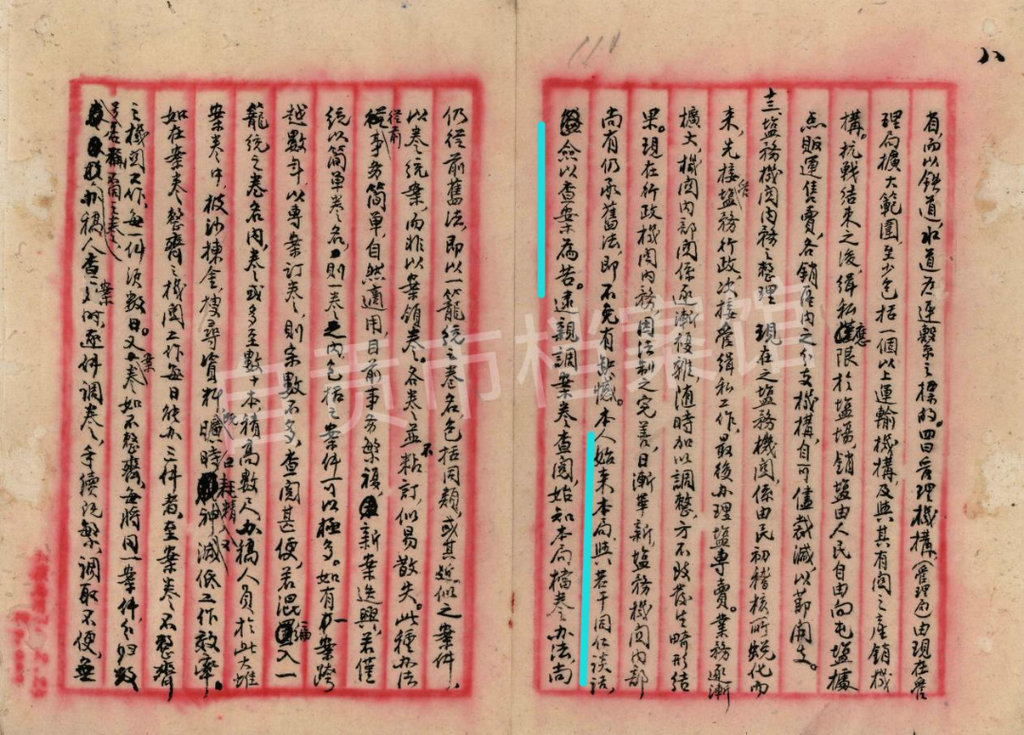 八
有，而以鉄道，水道为連繫之標的。四管理機構，(管理局由現在管
理局擴大範圍，至少包括一個以上運輸機構及與其有関之產銷機
構，抗戰結束之後，緝私應限於塩場，銷塩由人民自由向屯塩據
点販運售賣，各銷區内之分支機構，自可儘裁減，以節開支。
三、塩務機関内務之整理　現在之塩務機関係由民初稽核所蛻化而
來，先接管塩務行政，次接管緝私工作，最後办理塩專賣。業務逐漸
擴大，機関内部関係逐漸複雜，隨時加以調整，方不致發生畸形結
果。現在行政機関内務，因法制之完善，日漸革新，塩務機関内部
尚有仍承舊法，即不免有缺憾。本人始來本局與若干同仁談話，
僉以查案為苦。遂親調案卷查閲，始知本局檔卷办法，尚
仍從前舊法，即以一籠統之卷名，包括同類，或其近似之案件，
以卷統案，而非以案領卷。各卷並不粘訂，似易散失。此種办法
從前事务简單，自然適用，目前事务繁複，新案迭興，若僅
統以简單卷名，則一卷之内，包括之案件可以極多。如有一案跨
越數年，以專案訂卷，則本數不多，查閲甚便，若混编入一
籠統之卷名内，卷或多至數十本，積高數尺，办稿人員於此大堆
案卷中，披沙揀金，搜尋資料，既曠時耗精神，又減低工作效率。
如在案卷整齊之機関，工作每日能办三件者，至案卷不整齊
之機関工作，每件須數日。又案卷如不整齊，每將同一案件，分归數
办稿人查案时逐件調卷，手續既繁，調取不便，無
自贡市档案馆